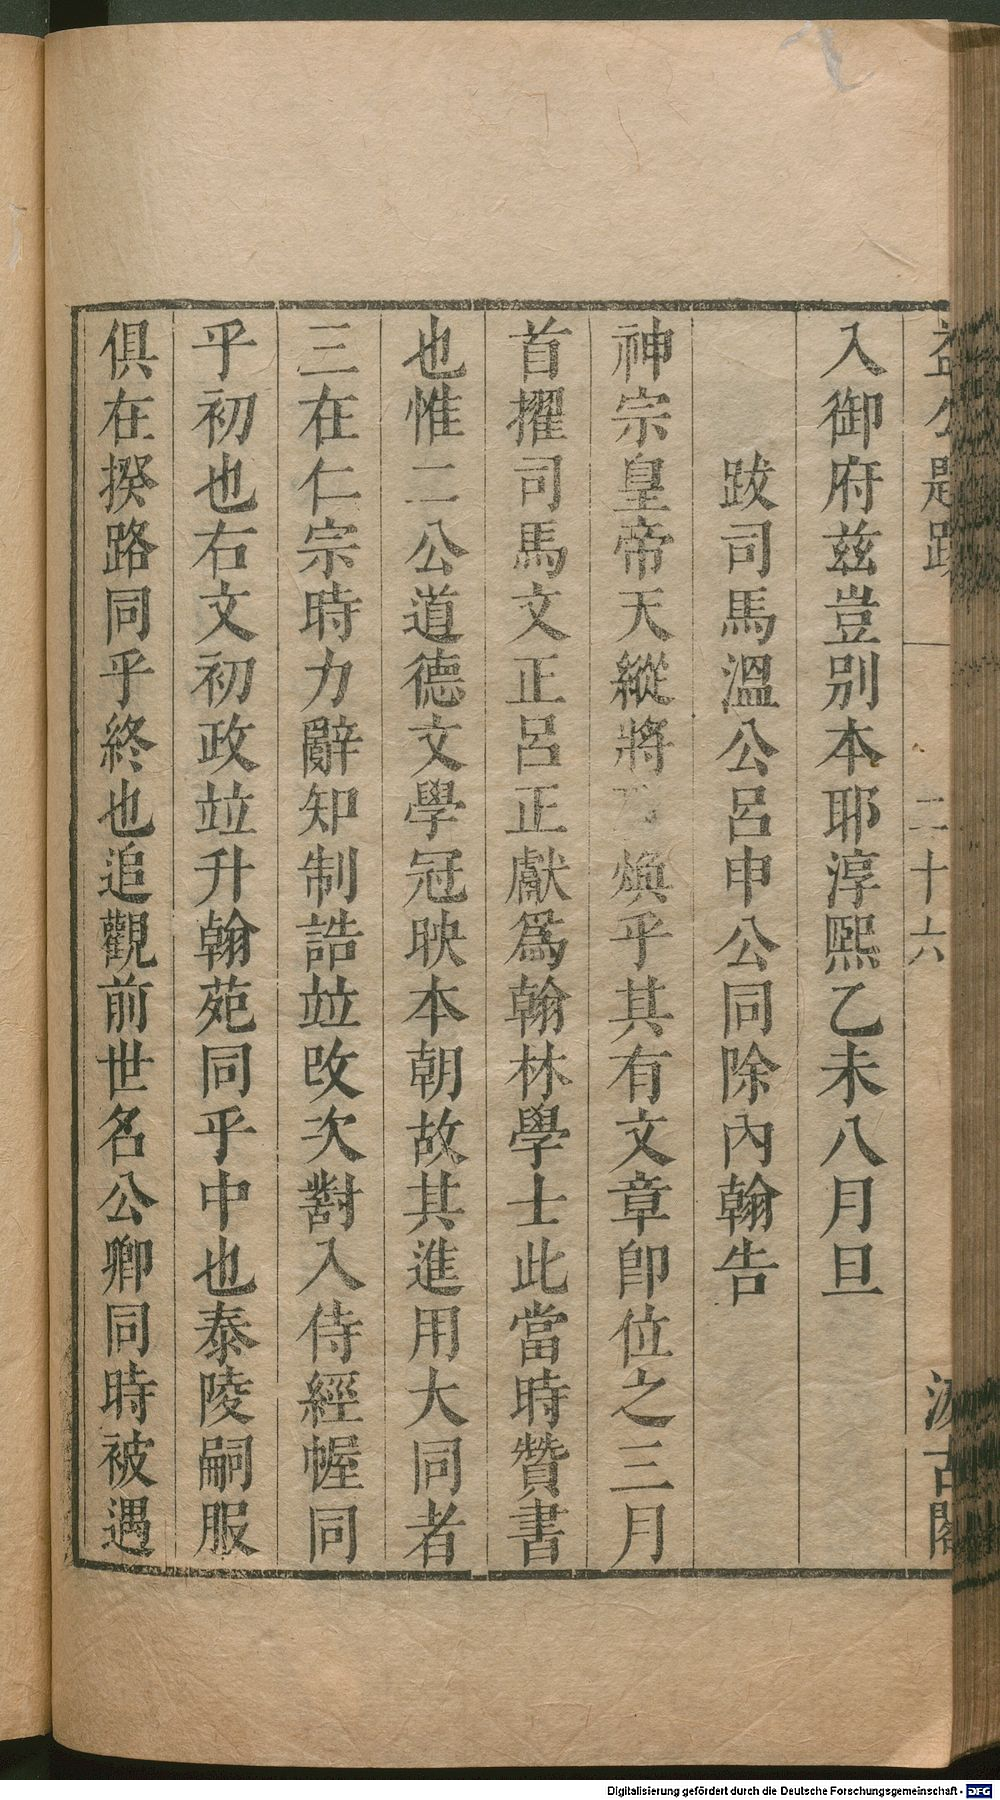 益公題跋 二十六 汲古閣
入御府兹豈別本耶淳熙乙未八月旦
跋司馬溫公呂申公同除內翰告
神宗皇帝天縱將 煥乎其有文章卽位之三月
首擢司馬文正呂正獻爲翰林學士此當時贊書
也惟二公道德文學冠映本朝故其進用大同者
三在仁宗時力辭知制誥竝改次對入侍經幄同
乎初也右文初政竝升翰苑同乎中也泰陵嗣服
俱在揆路同乎終也追觀前世名公卿同時被遇
Digitalisierung gefördert durch die Deutsche Forschungsgemeinschaft - DFG